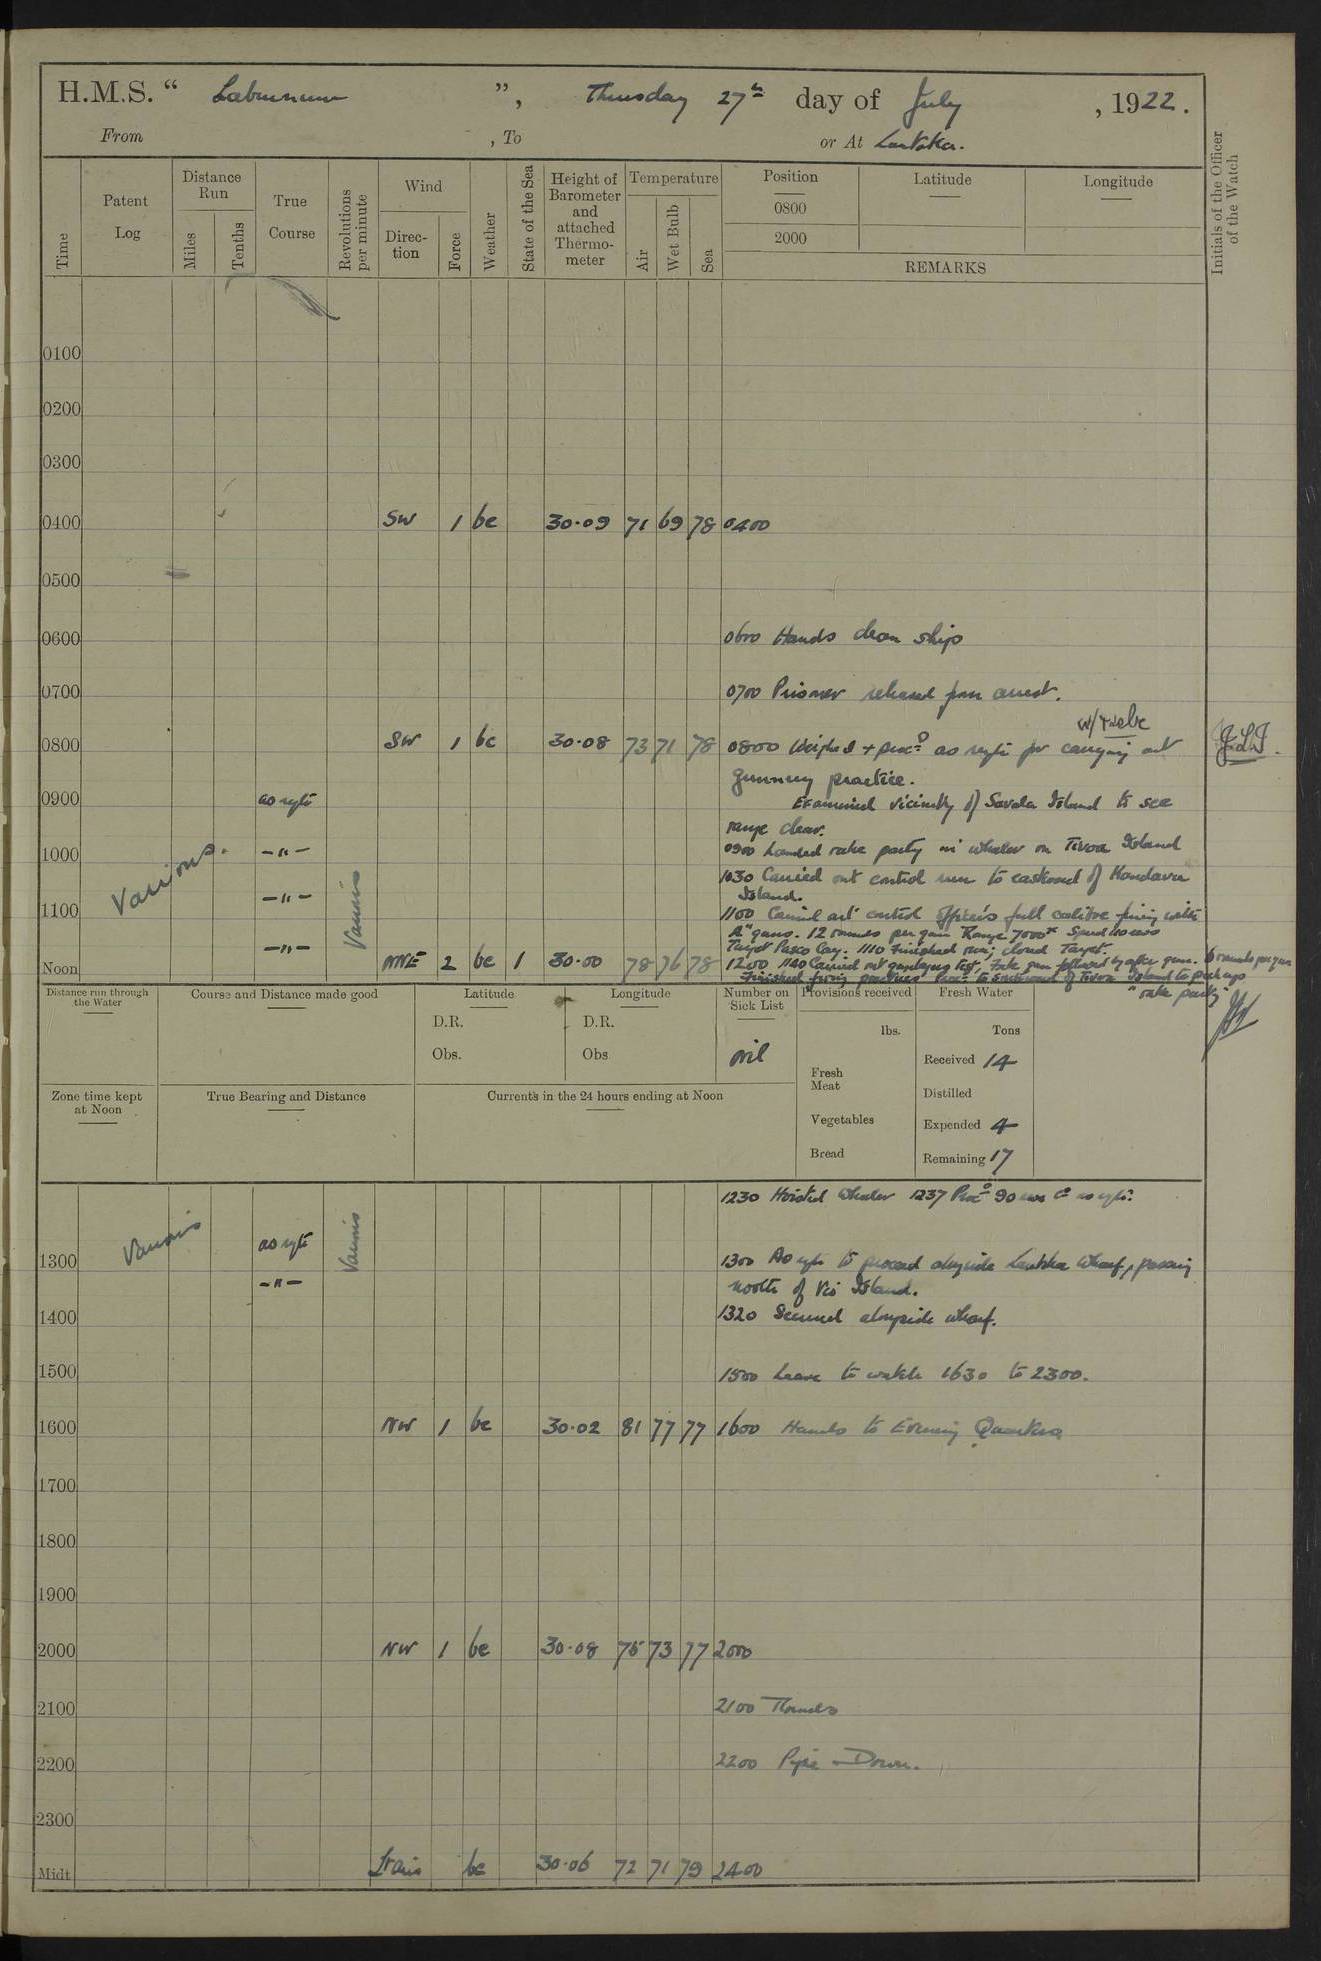 H.M.S. " Laburnum ", Thursday 27th day of July, 1922.
From , To or At Lautoka.
Time
Patent Log
Distance Run
Miles
Tenths
True Course
Revolutions per minute
Wind
Direction
Force
Weather
State of the Sea
Height of Barometer and attached Thermometer
Temperature
Air
Wet Bulb
Sea
Position
0800
2000
Latitude
Longitude
REMARKS
Initials of the Officer of the Watch
0100
0200
0300
0400 SW 1 bc 30.09 71 69 78 0400
0500
0600 0600 Hands clean ship
0700 0700 Prisoner released from arrest.
W/Twelve
0800 SW 1 bc 30.08 73 71 78 0800 Weighed + procd as reqte for carrying out
gunnery practice.
0900 as reqte Examined vicinity of Savala Island to see
range clear.
1000 Various. -"- 0900 Landed rake party in whaler on Tivoa Island
1030 Carried out control run to eastward of
Island.
1100 -"- Various 1100 Carried out control officer's full calibre firing with
"A" guns. 12 rounds per gun Range 7000x Speed 10
Target Pasco Cay. 1110 Finished run; closed Target.
Noon -"- NNE 2 bc 1 30.00 78 76 78 1200 1140 Carried out gunlayers test, Foxle gun followed by after gun. 6 rounds per gun
Finished firing practices Procd to Southward of Tivoa Island to pick up
"rake party"
Distance run through the Water
Course and Distance made good
Latitude
D.R.
Obs.
Longitude
D.R.
Obs
Number on Sick List
nil
Provisions received
lbs.
Fresh Meat
Vegetables
Bread
Fresh Water
Tons
Received 14
Distilled
Expended 4
Remaining 17
Zone time kept at Noon
True Bearing and Distance
Currents in the 24 hours ending at Noon
1230 Hoisted Whaler 1237 Procd 90 revs Co as reqte.
1300 Various as reqte Various 1300 As reqte to proceed alongside Lautoka Wharf, passing
-"- North of Vio Island.
1400 1320 Secured alongside wharf.
1500 1500 Leave to watch 1630 to 2300.
1600 NW 1 bc 30.02 81 77 77 1600 Hands to Evening Quarters
1700
1800
1900
2000 NW 1 bc 30.08 75 73 77 2000
2100 2100 Rounds
2200 2200 Pipe Down.
2300
Midt bc 30.06 72 71 79 2400